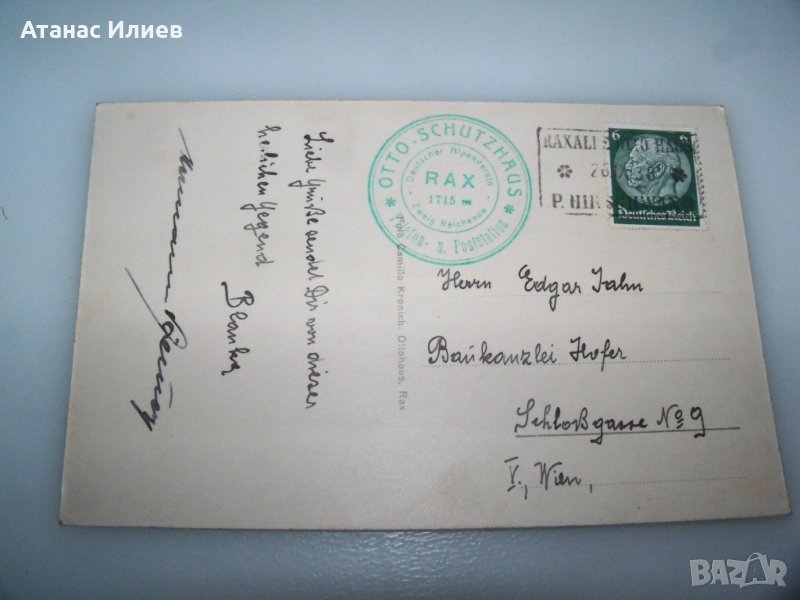 Атанас Илиев
OTTO-SCHUTZHAUS
Deutscher Alpenverein
RAX
1715 m
Zweig Reichenau
Telefon- u. Poststation
6 6
Deutsches Reich
RAXALPE OTTO HAUS
P. HIRSCHWANG
Liebe Grüße sendet Dir von dieser
herrlichen Gegend
Blanka
Foto Camillo Kronich, Ottohaus, Rax
Herrn Edgar Jahn
Baukanzlei Hofer
Schloßgasse No 9
V., Wien,
BAZAR